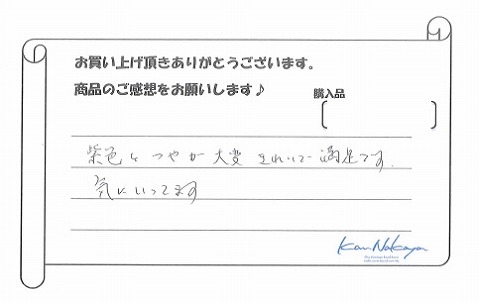 お買い上げ頂きありがとうございます。
商品のご感想をお願いします♪
購入品
[ ]
紫色とつやが大変きれいで満足です.
気にいってます
Kan Nakaya